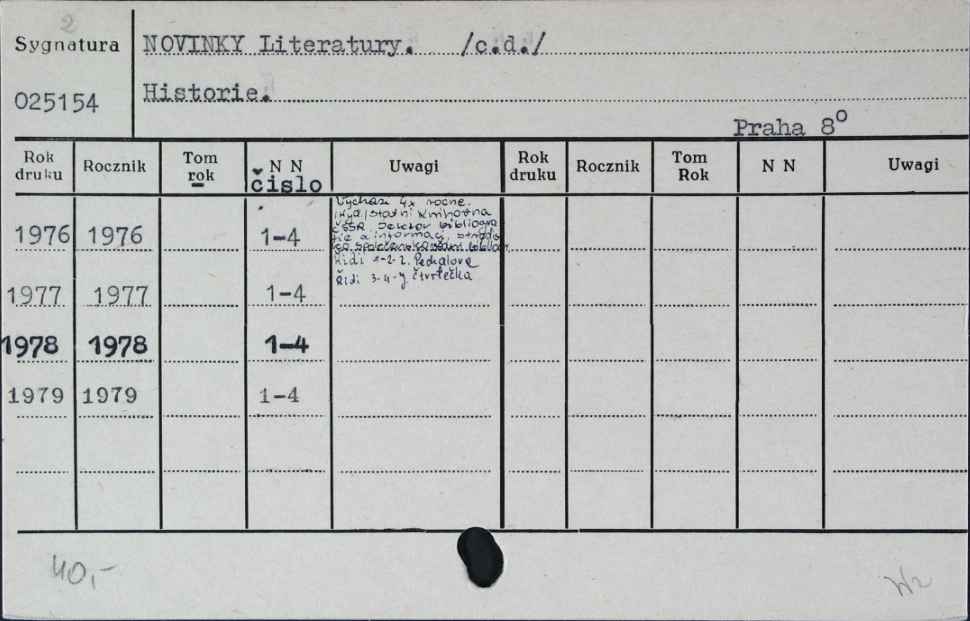 2
Sygnatura
025154
NOVINKY Literatury. /c.d./
Historie.
Praha 8°
Rok druku Rocznik Tom rok N N čislo Uwagi Rok druku Rocznik Tom Rok N N Uwagi
1976 1976 1-4
Vychází 4x ročně.
Státní knihovna
ČSSR. Sektor bibliogra
fie a informací, středis
Řídí 1-2
Řídí 3-4 Čtvrtečka
1977 1977 1-4
1978 1978 1-4
1979 1979 1-4
40,-